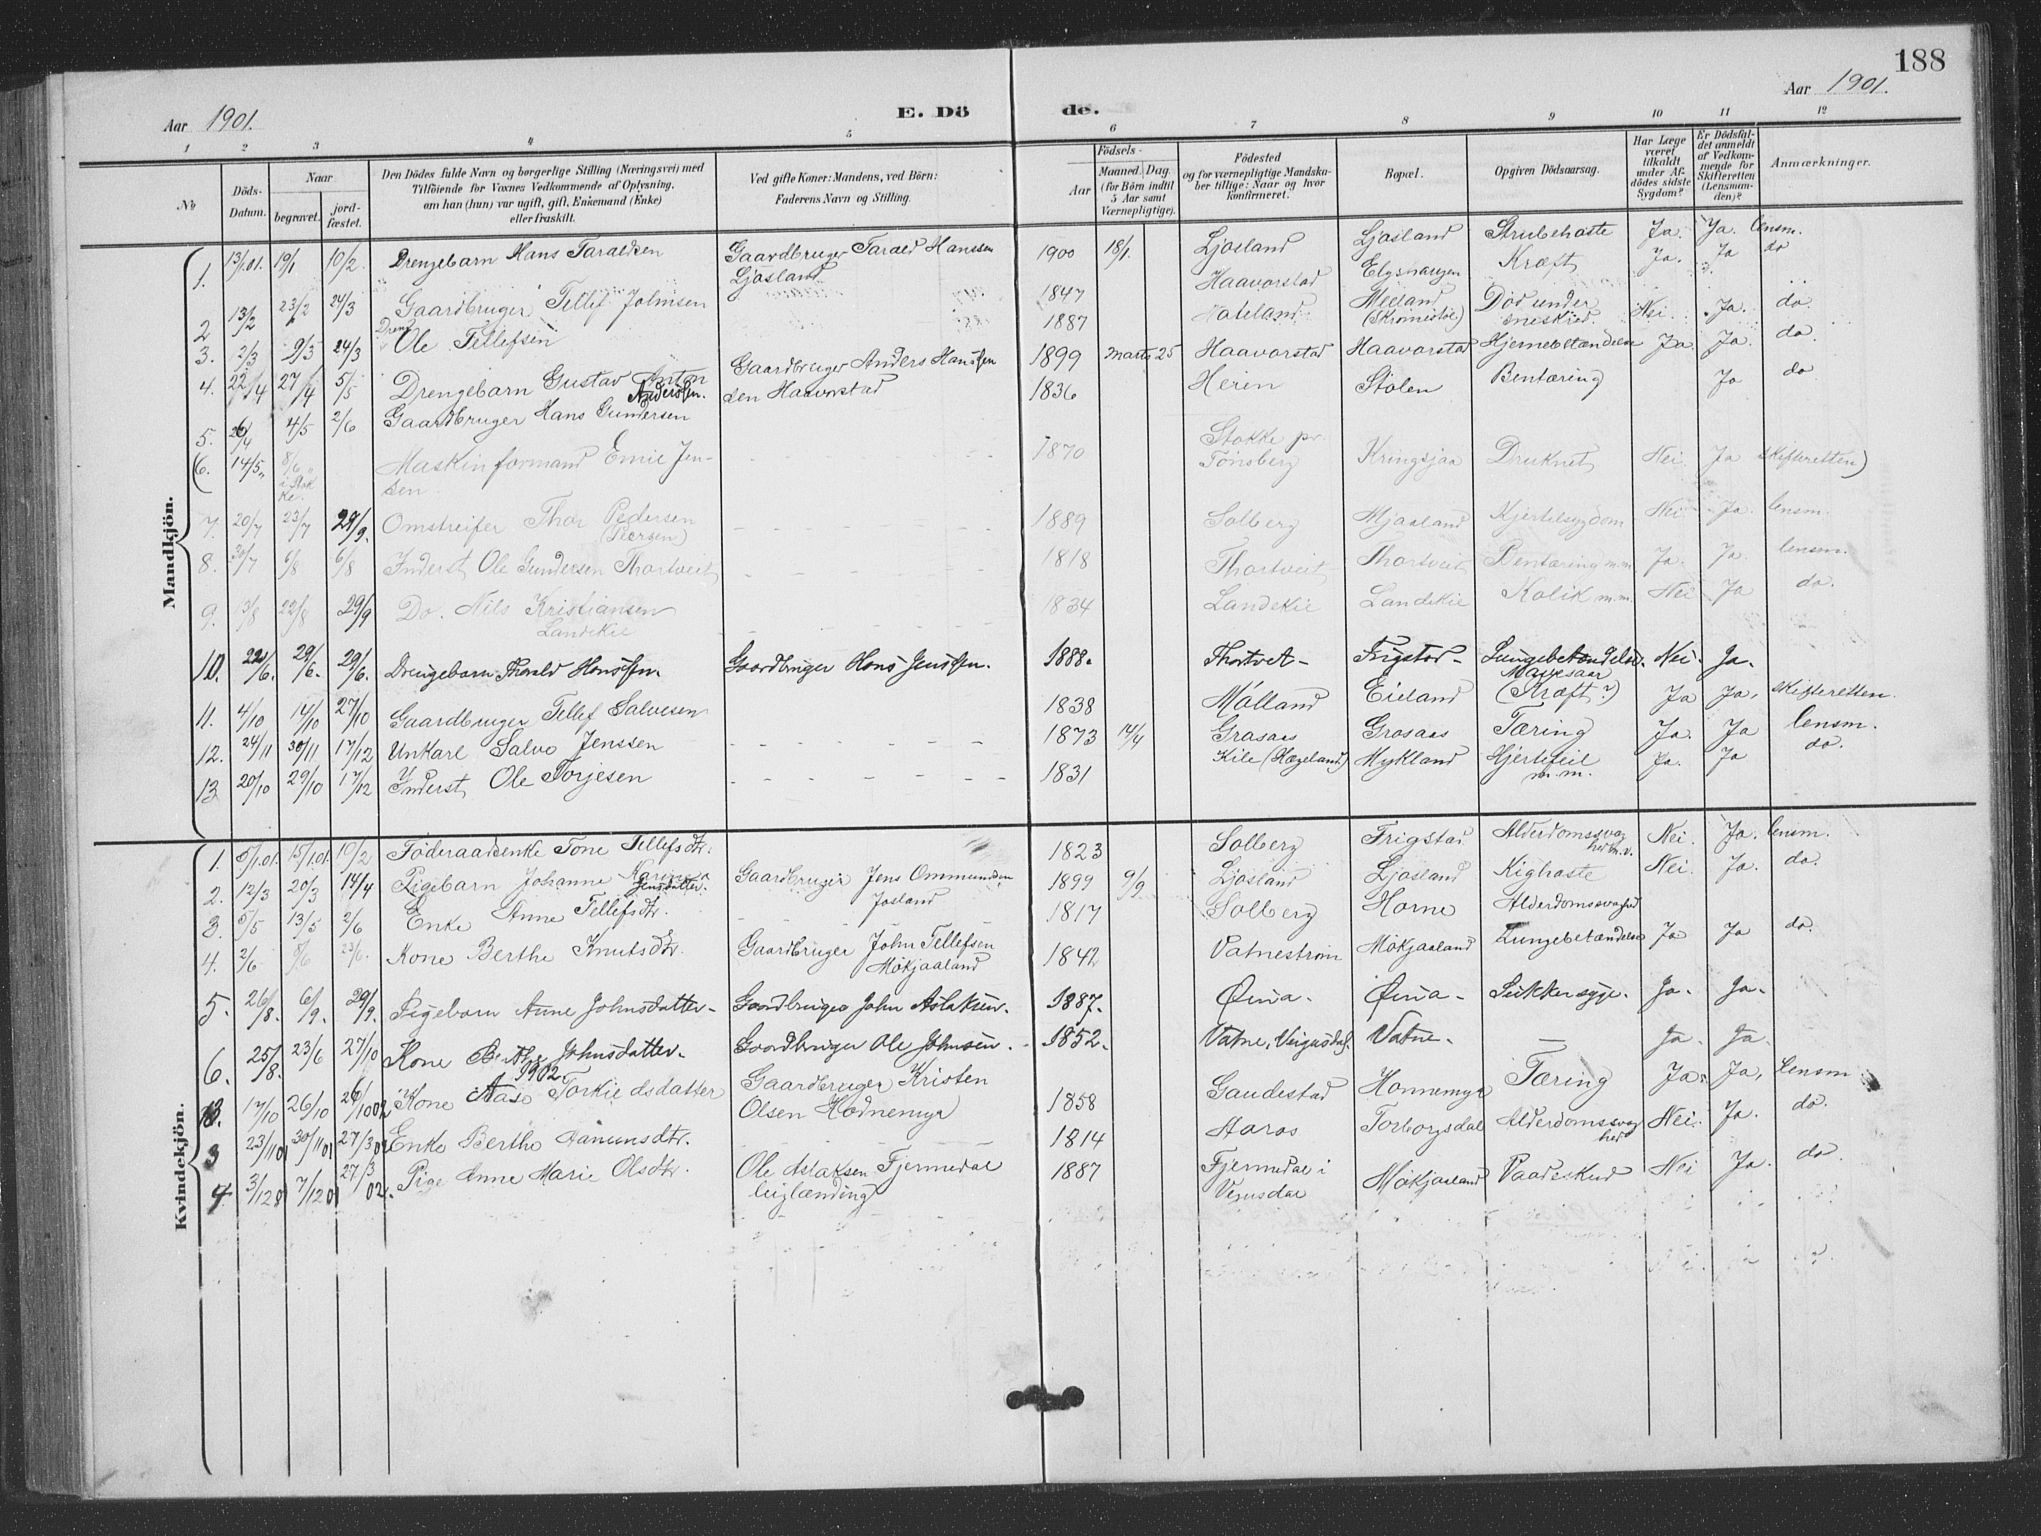 188
Aar 1901.
E. Dö de.
Aar 1901.
1 2 3 4 5 6 7 8 9 10 11 12
№
Döds-Datum.
Naar
begravet.
jord-fæstet.
Den Dödes fulde Navn og borgerlige Stilling (Næringsvei) med
Tilföiende for Voxnes Vedkommende af Oplysning,
om han (hun) var ugift, gift, Enkemand (Enke)
eller fraskilt.
Ved gifte Koner: Mandens, ved Börn:
Faderens Navn og Stilling.
Födsels-
Aar
Maaned. Dag.
(for Börn indtil
5 Aar samt
Værnepligtige).
Födested
og for værnepligtige Mandsku-
ber tillige: Naar og hvor
konfirmeret.
Bopæl.
Opgiven Dödsaarsag.
Har Læge
været
tilkaldt
under Af-
dödes sidste
Sygdom?
Er Dödsfal-
det anmeldt
af Vedkom-
mende for
Skifteretten
(Lensman-
den)?
Anmærkninger.
Mandkjön.
1. 13/1.01. 19/1 10/2. Drengebarn Hans Taraldsen Gaardbruger Tarald Hanssen Ljosland 1900 18/1. Ljosland Ljosland Strubehoste Ja. Ja. lensm.
2 13/2 23/2 24/3 Gaardbruger Tellef Johnsen 1847 Haavorstad Elgshaugen Kræft Ja. Ja do
3. 2/3 9/3 24/3 Dreng Ole Tellefsen 1887 Hateland Mieland (Skromestöl) Död under sneskred. Nei. Ja. do.
4. 22/4 27/4 5/5 Drengebarn Gustav Anton Anderssen. Gaardbruger Anders Hanssen Haavorstad 1899 Marts 25 Haavorstad Haavorstad Hjernebetændelse Ja. Ja. do.
5. 26/4 4/5 2/6 Gaardbruger Hans Gundersen 1836 Heren Stolen Bentæring Ja do
6. 14/5. 8/6 i Stokke. Maskinformand Emil Jensen. 1870 Stokke pr. Tönsberg Kringsjaa Druknet Nei. Ja skifteretten)
7. 20/7 23/7 29/9. Omstreifer Thor Pedersen (Peersen) 1889 Solberg Mjaaland Kjertelsygdom Nei Ja. lensm.
8. 30/7 6/8 6/8 Inderst Ole Gundersen Thortveit 1818 Thortveit Thortveit Bentæring m.m. Ja. Ja. lensm.
9. 13/8 22/8 29/9 Do. Nils Kristiansen Landekie 1834 Landekie Landekie Kolik m.m. Nei Ja do.
10. 22/6. 29/6. 29/6. Drengebarn Thorald Hanssen. Gaardbruger Hans Jenssen. 1888. Thortvet - Frigstad - Lungebetændelse. Nei. Ja.
11. 4/10 14/10 27/10 Gaardbruger Tellef Salvesen 1838 Mölland Eieland Mavesaar (Kræft?) Ja Ja. skifteretten.
12. 24/11 30/11 17/12 Unkarl Salvo Jenssen 1873 14/4 Grasaas Grosaas Tæring Ja. Ja lensm.
13 20/10 29/10 17/12 Inderst Ole Torjesen 1831 Kile (Hægeland.) Mykland Hjertefeil m.m. Ja. Ja do.
Kvindekjön.
1. 5/1.01. 15/1.01. 10/2 Föderaadsenke Tone Tellefsdtr. 1823 Solberg Frigstad Alderdomssvaghed m.v. Nei. Ja. lensm.
2. 12/3 20/3 14/4 Pigebarn Johanne Karine Jensdatter. Gaardbruger Jens Ommundsen Josland 1899 9/9 Ljosland Ljosland Kighoste Nei. Ja. do.
3. 5/5 13/5 2/6 Enke Anne Tellefsdtr. 1817 Solberg Horne Alderdomssvaghed
4. 2/6 8/6 23/6. Kone Berthe Knutsdtr. Gaardbruger John Tellefsen Mökjaaland 1842 Vatneström Mökjaaland Lungebetændelse Ja Ja do.
5. 26/8. 6/9. 29/9. Pigebarn Anne Johnsdatter - Gaardbruger John Aslaksen. 1887. Øvria - Øvria - Sukkersyge. Ja. Ja.
6. 25/8. 23/6 27/10 Kone Berthe Johnsdatter. Gaardbruger Ole Johnsen. 1852. Vatne, Veigusdal. Vatne. — Ja. Ja.
1902.
17/10 26/10 26/10 02 Kone Aase Torkildsdatter Gaardbruger Kristen Olsen Hodnemyr 1858 Gaudestad Honnemyr Tæring Ja. Ja, lensm
3 23/11 01 30/11 01 27/3 02 Enke Berthe Aanensdtr. 1814 Aaros Torborgsdal Alderdomssvaghed Nei. Ja. do.
4 3/12 01 7/12 01 27/3 02. Pige Anne Marie Olsdtr. Ole Aslaksen Fjermedal leiglænding 1887 Fjermedal i Vegusdal Mökjaaland Vaadeskud Nei Ja. do.